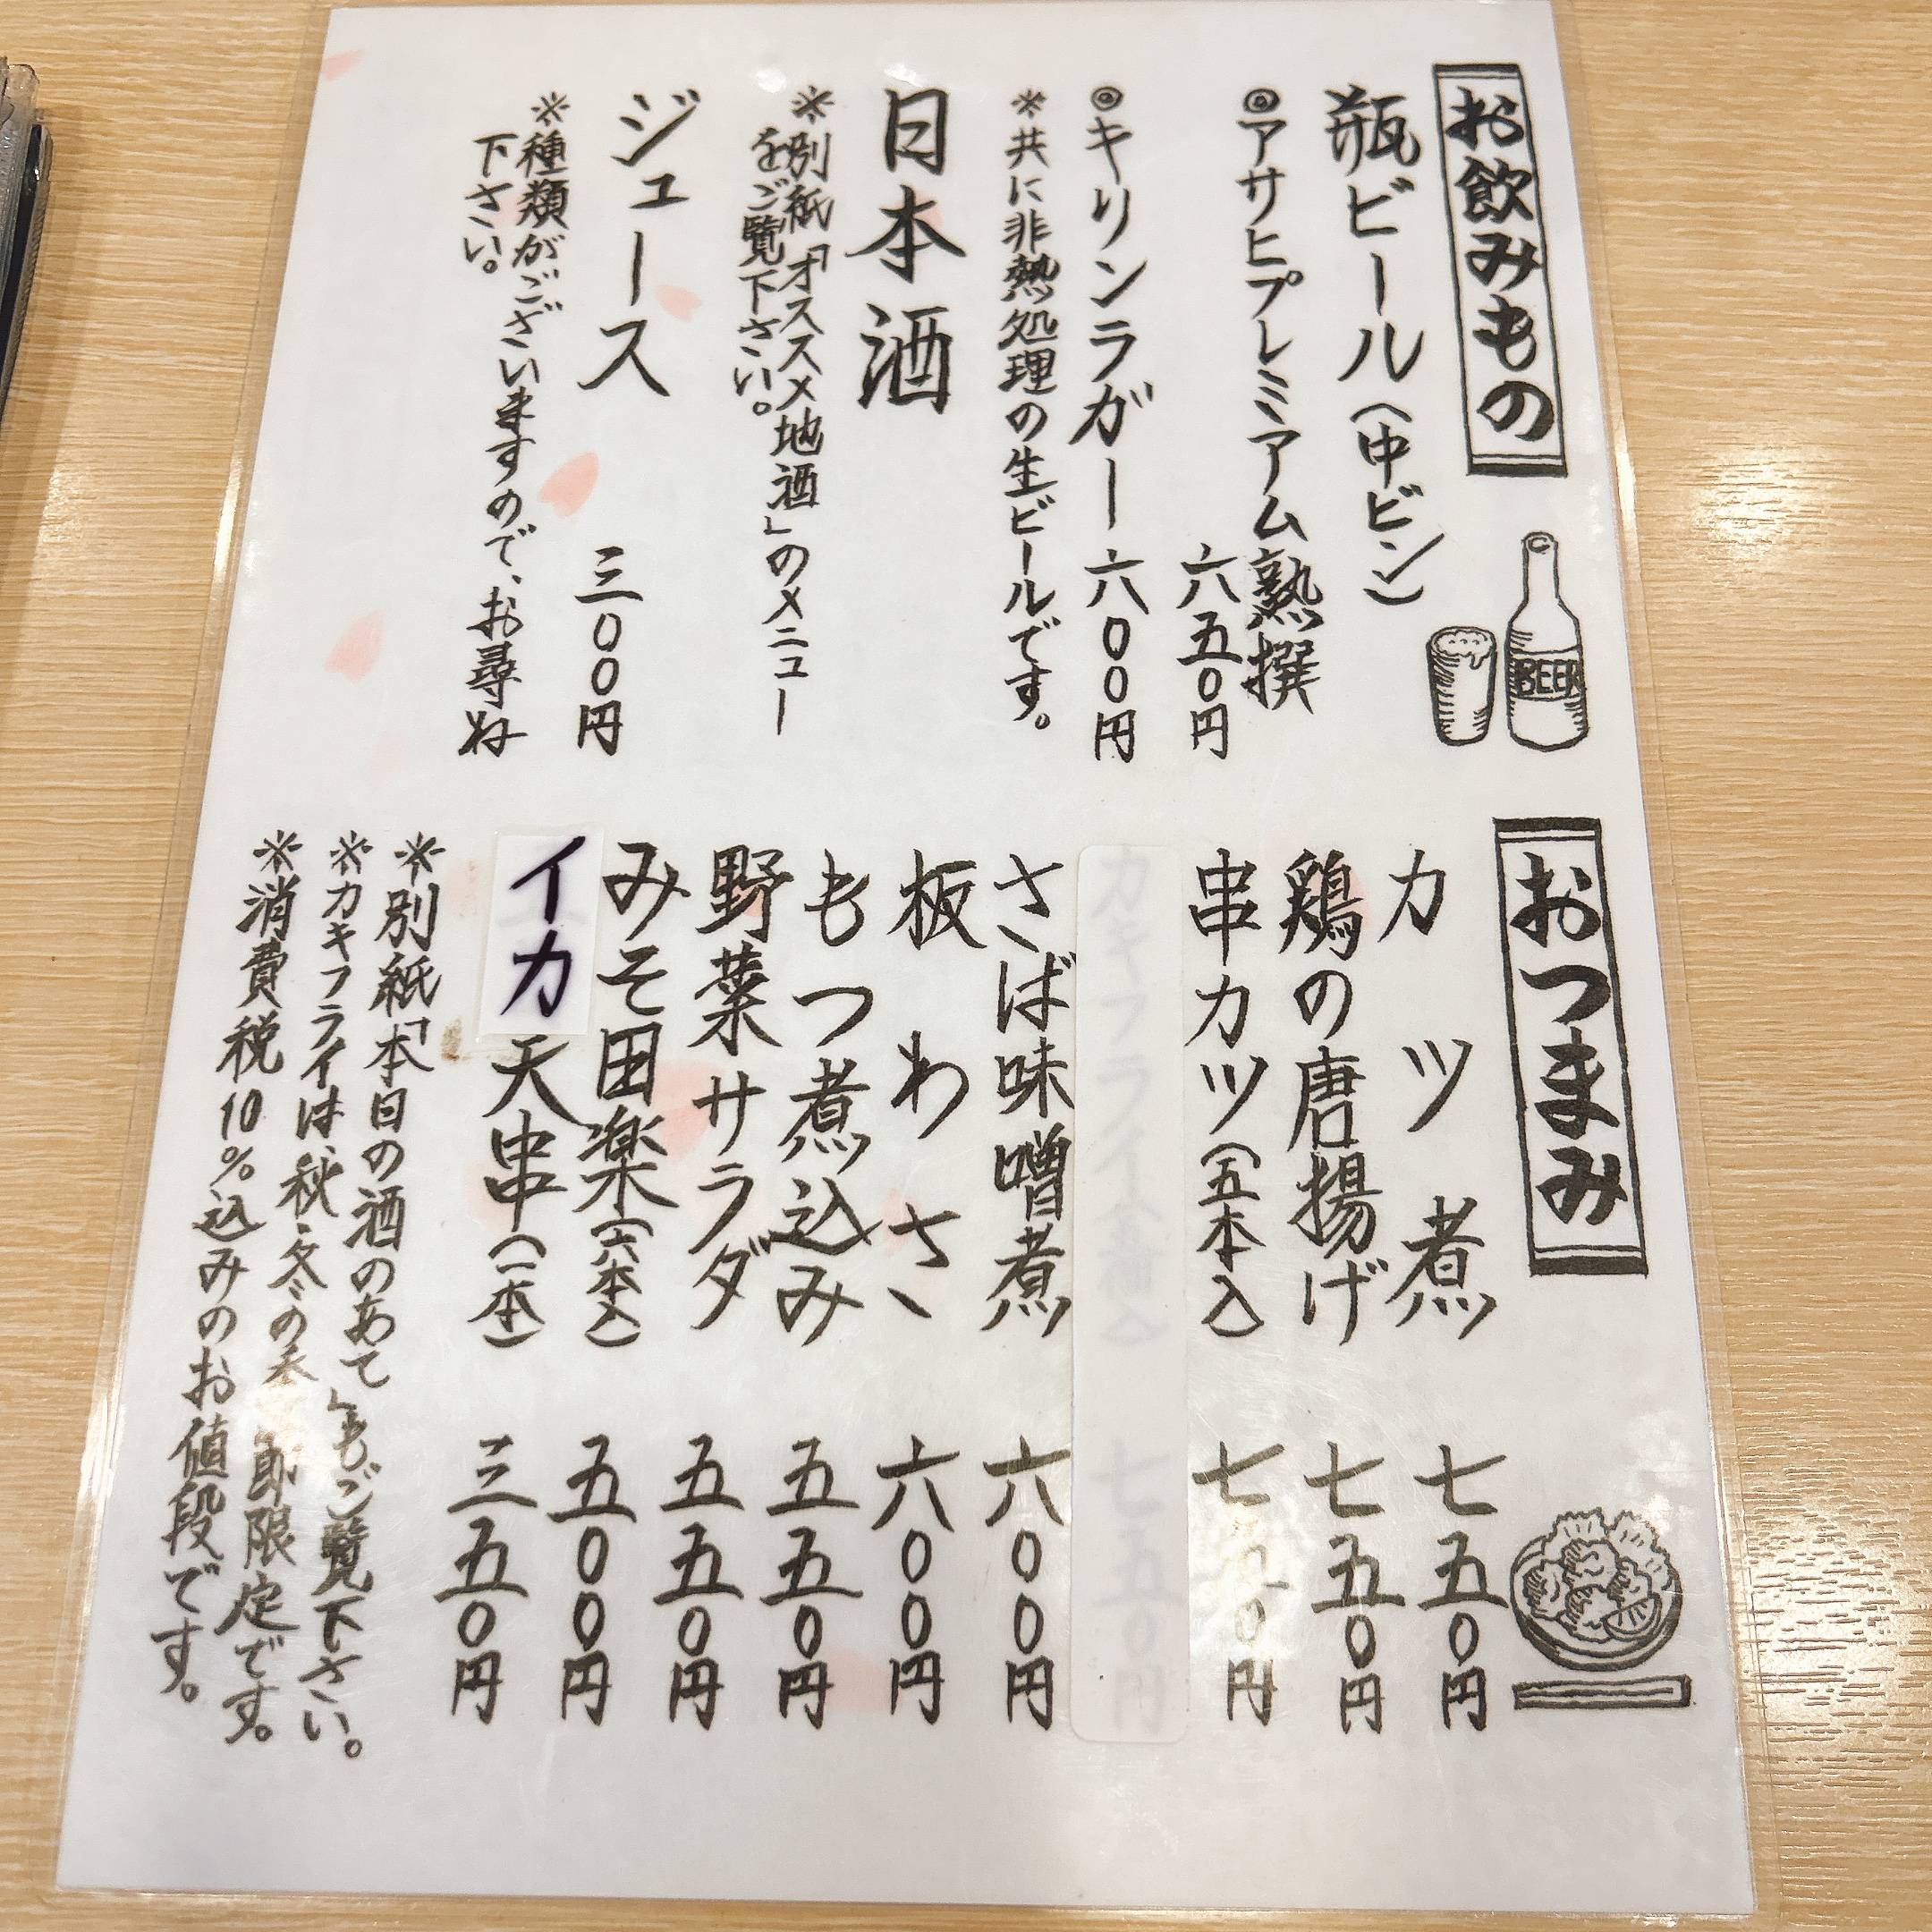 お飲みもの
瓶ビール（中ビン）
◎アサヒプレミアム熟撰
六五〇円
◎キリンラガー 六〇〇円
※共に非熱処理の生ビールです。
日本酒
※別紙「オススメ地酒」のメニュー
をご覧下さい。
ジュース 三〇〇円
※種類がございますので、お尋ね
下さい。
BEER
おつまみ
カツ煮 七五〇円
鶏の唐揚げ 七五〇円
串カツ（五本入） 七 〇円
カキフライ 七五〇円
さば味噌煮 六〇〇円
板わさ 六〇〇円
もつ煮込み 五五〇円
野菜サラダ 五五〇円
みそ田楽（六本入） 五〇〇円
イカ天串（一本） 三五〇円
※別紙「本日の酒のあて」もご覧下さい。
※カキフライは、秋・冬の 限定です。
※消費税10％込みのお値段です。